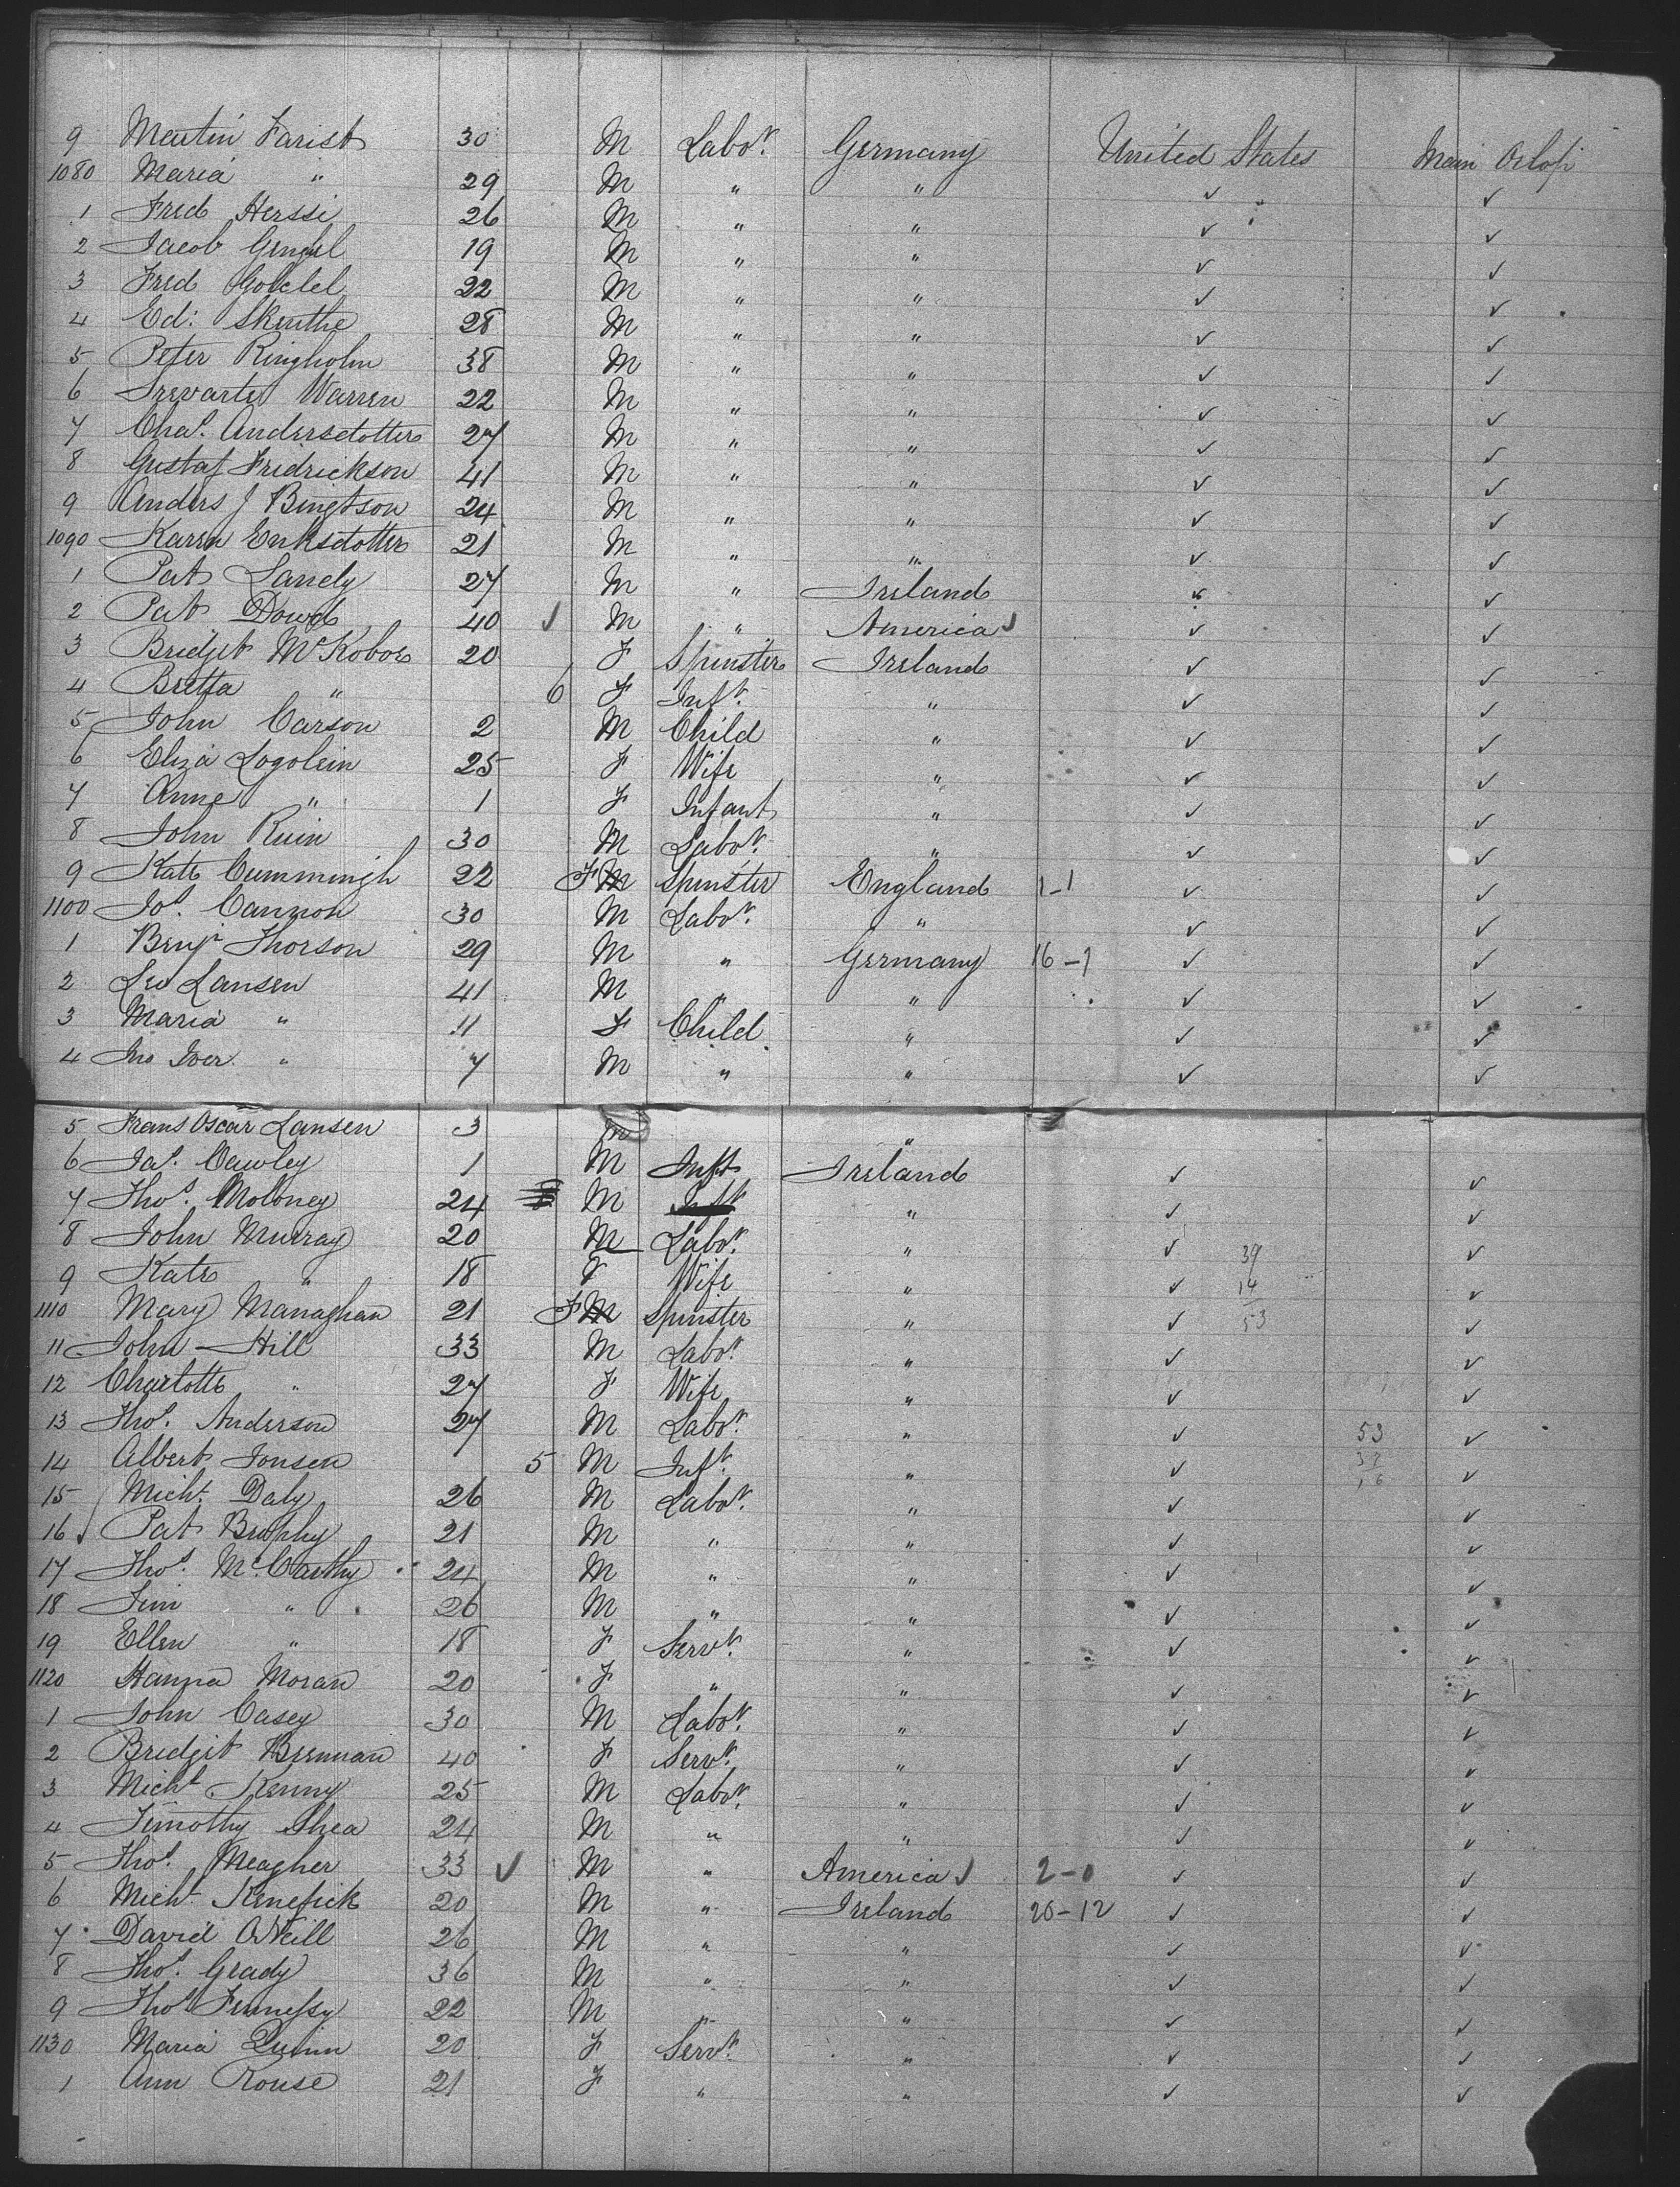 9 Martin Farist 30 M Labor. Germany United States Main Orlop
1080 Maria " 29 M " " ✓ ✓
1 Fred Herssi 26 M " " ✓ ✓
2 Jacob 19 M " " ✓ ✓
3 Fred 22 M " " ✓ ✓
4 Ed: Skuthe 28 M " " ✓ ✓
5 Peter Ringholm 38 M " " ✓ ✓
6 Warren 22 M " " ✓ ✓
7 Chas. Andersdotter 27 M " " ✓ ✓
8 Gustaf Fredrickson 41 M " " ✓ ✓
9 Anders J Bingtson 24 M " " ✓ ✓
1090 Karen Eriksdotter 21 M " " ✓ ✓
1 Pat Landy 27 M " Ireland ✓ ✓
2 Pat Dowd 40 ✓ M " America ✓ ✓ ✓
3 Bridget McKobor 20 F Spinster Ireland ✓ ✓
4 Bretta " 6 F Inft. " ✓ ✓
5 John Carson 2 M Child " ✓ ✓
6 Eliza Logolein 25 F Wife " ✓ ✓
7 Anne " 1 F Infant " ✓ ✓
8 John Ruin 30 M Labor. " ✓ ✓
9 Kate Cummingh 22 F M Spinster England 1-1 ✓ ✓
1100 Jos. Cannon 30 M Labor. " ✓ ✓
1 Benj. Thorson 29 M " Germany 16-1 ✓ ✓
2 Leo Lansen 41 M " " ✓ ✓
3 Maria " 11 F Child " ✓ ✓
4 Jno Iver " 7 M " " ✓ ✓
5 Frans Oscar Lansen 3 M "
6 Jas. Cawley 1 M Inft Ireland ✓ ✓
7 Thos. Moloney 24 M " ✓ ✓
8 John Murray 20 M Labor. " ✓ 39 ✓
9 Kate " 18 F Wife " ✓ 14 ✓
1110 Mary Managhan 21 F M Spinster " ✓ 53 ✓
11 John Hill 33 M Labor. " ✓ ✓
12 Charlotte " 27 F Wife " ✓ ✓
13 Thos. Anderson 27 M Labor. " ✓ 53 ✓
14 Albert Jonsen 5 M Inft. " ✓ ✓
15 Michl. Daly 26 M Labor. " ✓ ✓
16 Pat Brophy 21 M " " ✓ ✓
17 Thos. McCarthy 24 M " " ✓ ✓
18 Jim " 26 M " " ✓ ✓
19 Ellen " 18 F Servt. " ✓ ✓
1120 Hanna Moran 20 F " " ✓ ✓
1 John Casey 30 M Labor. " ✓ ✓
2 Bridget Brennan 40 F Servt. " ✓ ✓
3 Michl Kenny 25 M Labor. " ✓ ✓
4 Timothy Shea 24 M " " ✓ ✓
5 Thos. Meagher 33 ✓ M " America ✓ 2-0 ✓ ✓
6 Michl Kenefick 20 M " Ireland 20-12 ✓ ✓
7 David O'Neill 26 M " " ✓ ✓
8 Thos. Grady 36 M " " ✓ ✓
9 Thos Fennessy 22 M " " ✓ ✓
1130 Maria Quinn 20 F Servt. " ✓ ✓
1 Ann Rouse 21 F " " ✓ ✓